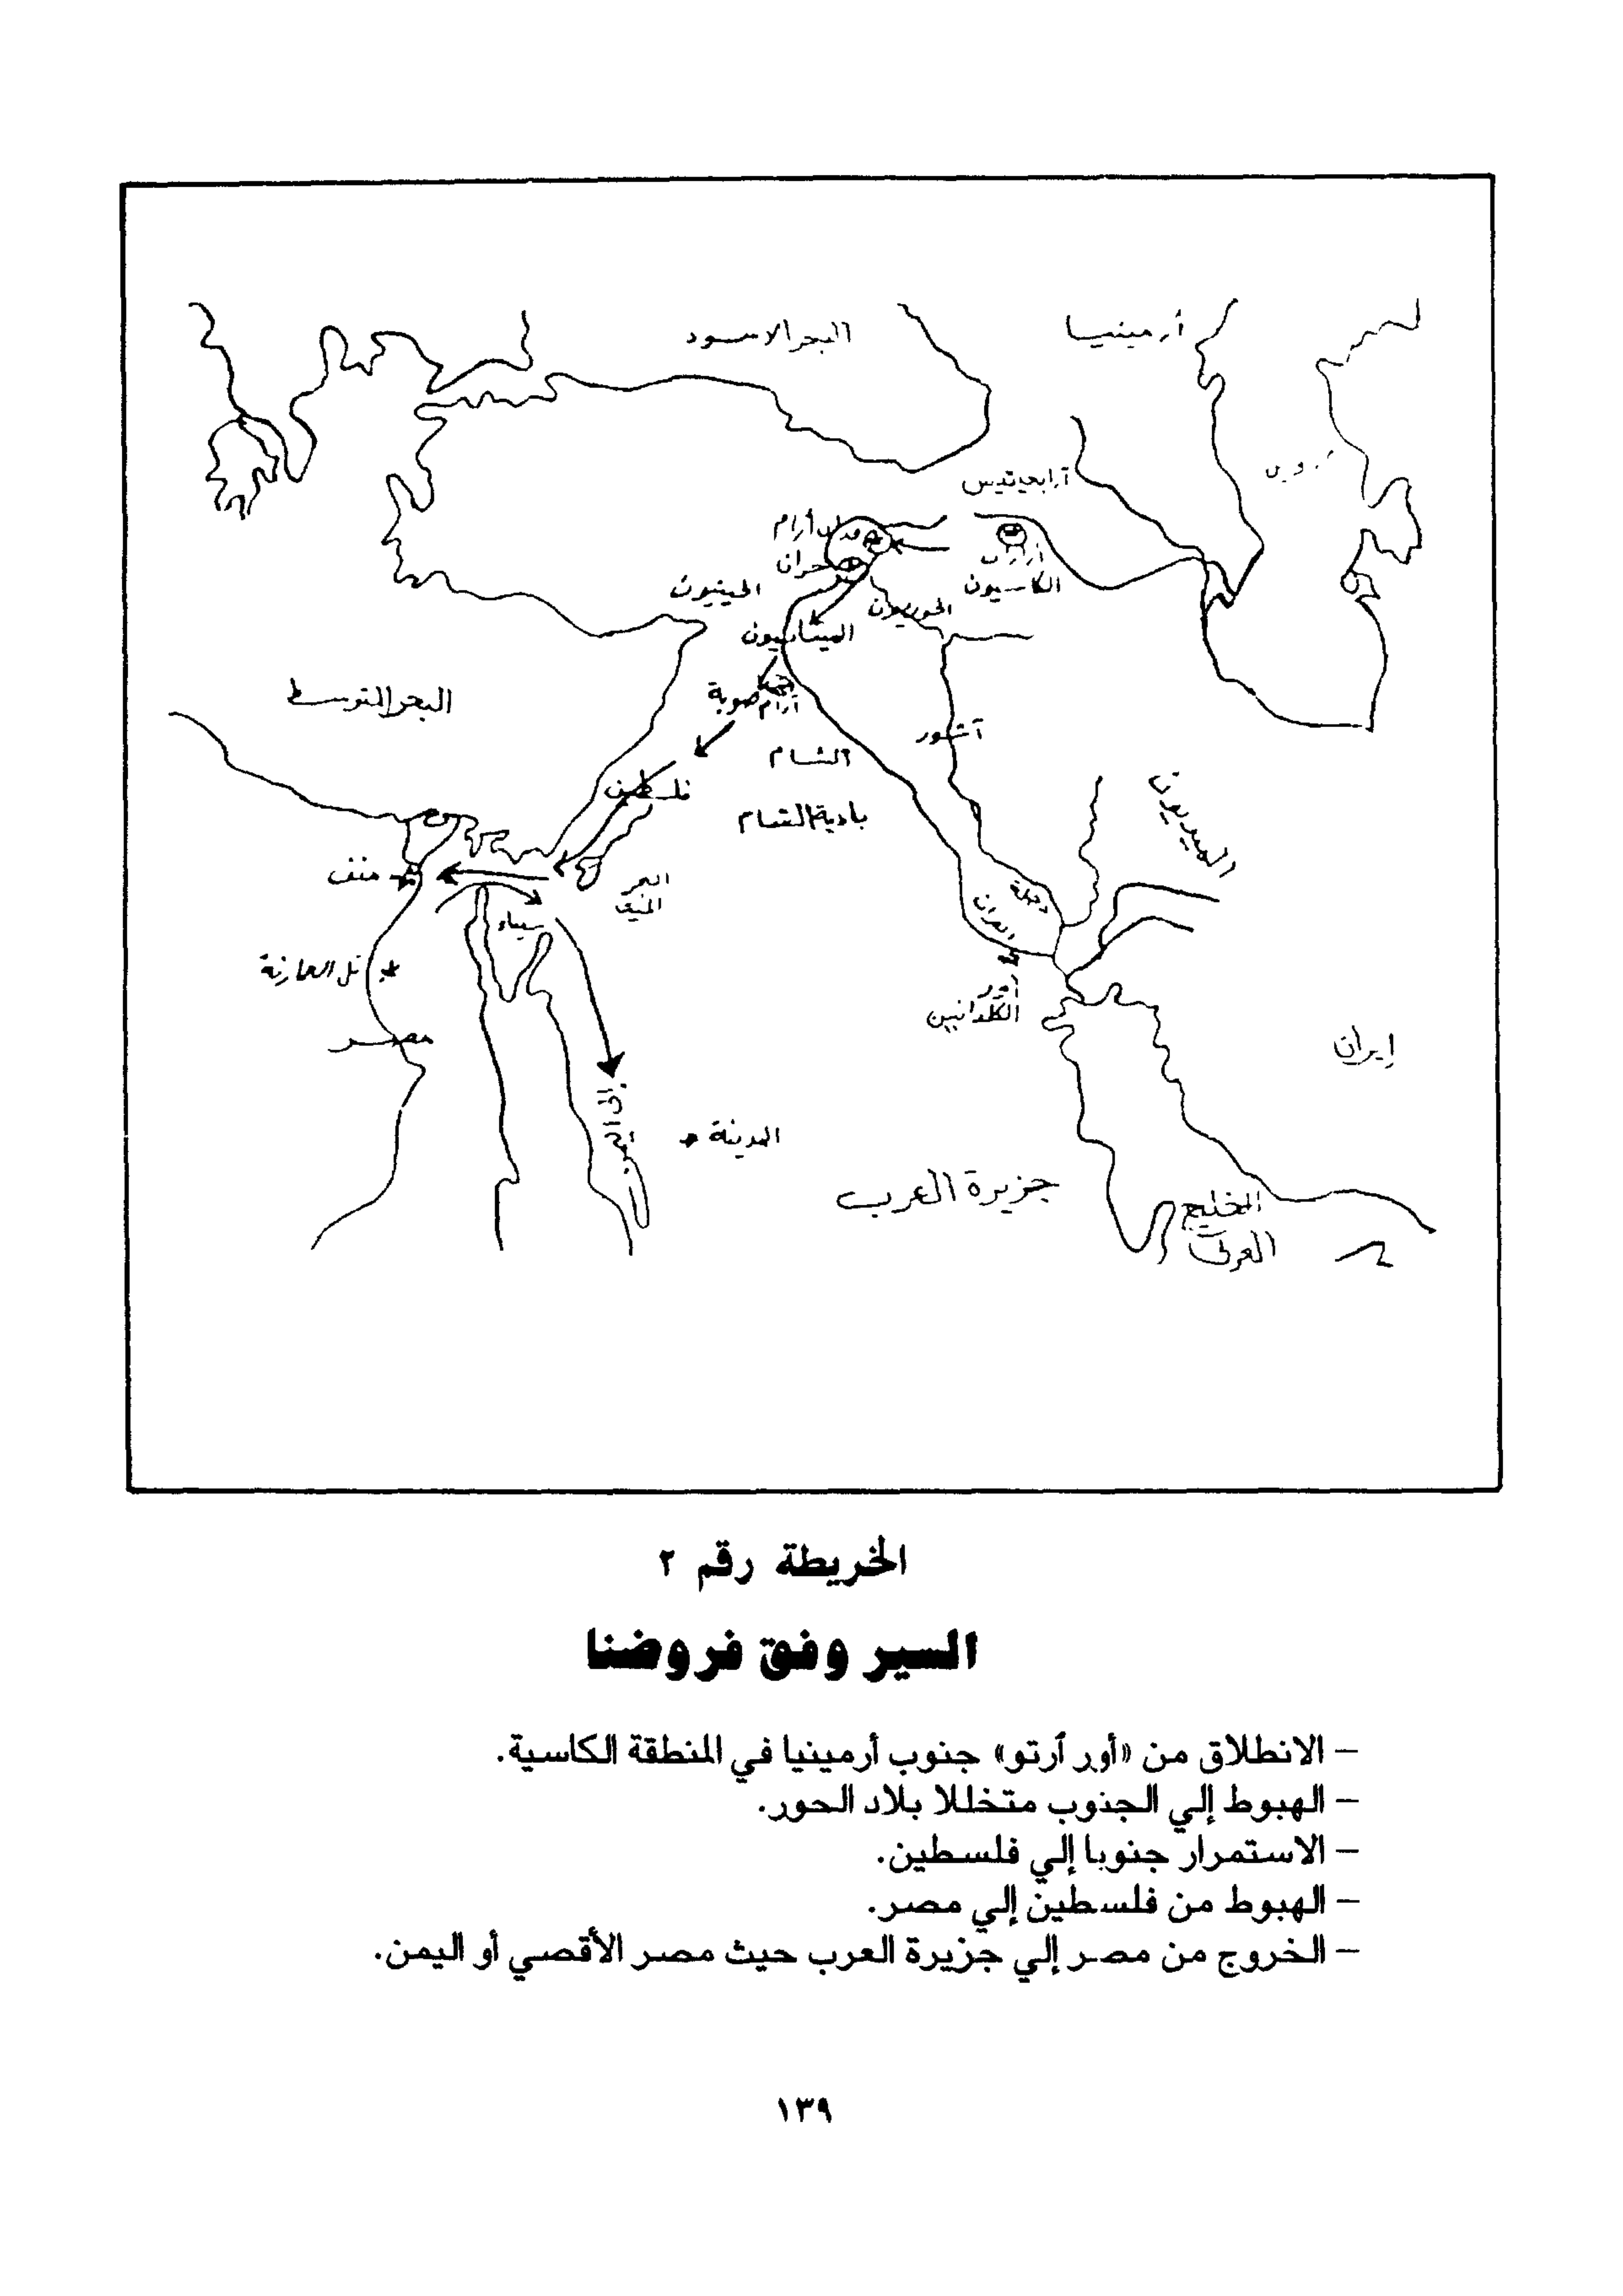 البحر الاسود
أرمينيا
آرابحيتيس
فدان أرام
حران
الكاسيون
الحيثيون
الحوريون
الميتانيون
البحر المتوسط
أرام صوبة
آشور
الشام
فلسطين
بادية الشام
الميديون
منف
البحر
الميت
دجلة
الفرات
سيناء
تل العمارنة
أور
الكلدانيين
مصر
إيران
إلى اليمن
المدينة
جزيرة العرب
الخليج
العربى
الخريطة رقم ٢
السير وفق فروضنا
– الانطلاق من «أور آرتو» جنوب أرمينيا في المنطقة الكاسية.
– الهبوط إلي الجنوب متخللا بلاد الحور.
– الاستمرار جنوبا إلي فلسطين.
– الهبوط من فلسطين إلي مصر.
– الخروج من مصر إلي جزيرة العرب حيث مصر الأقصي أو اليمن.
١٣٩